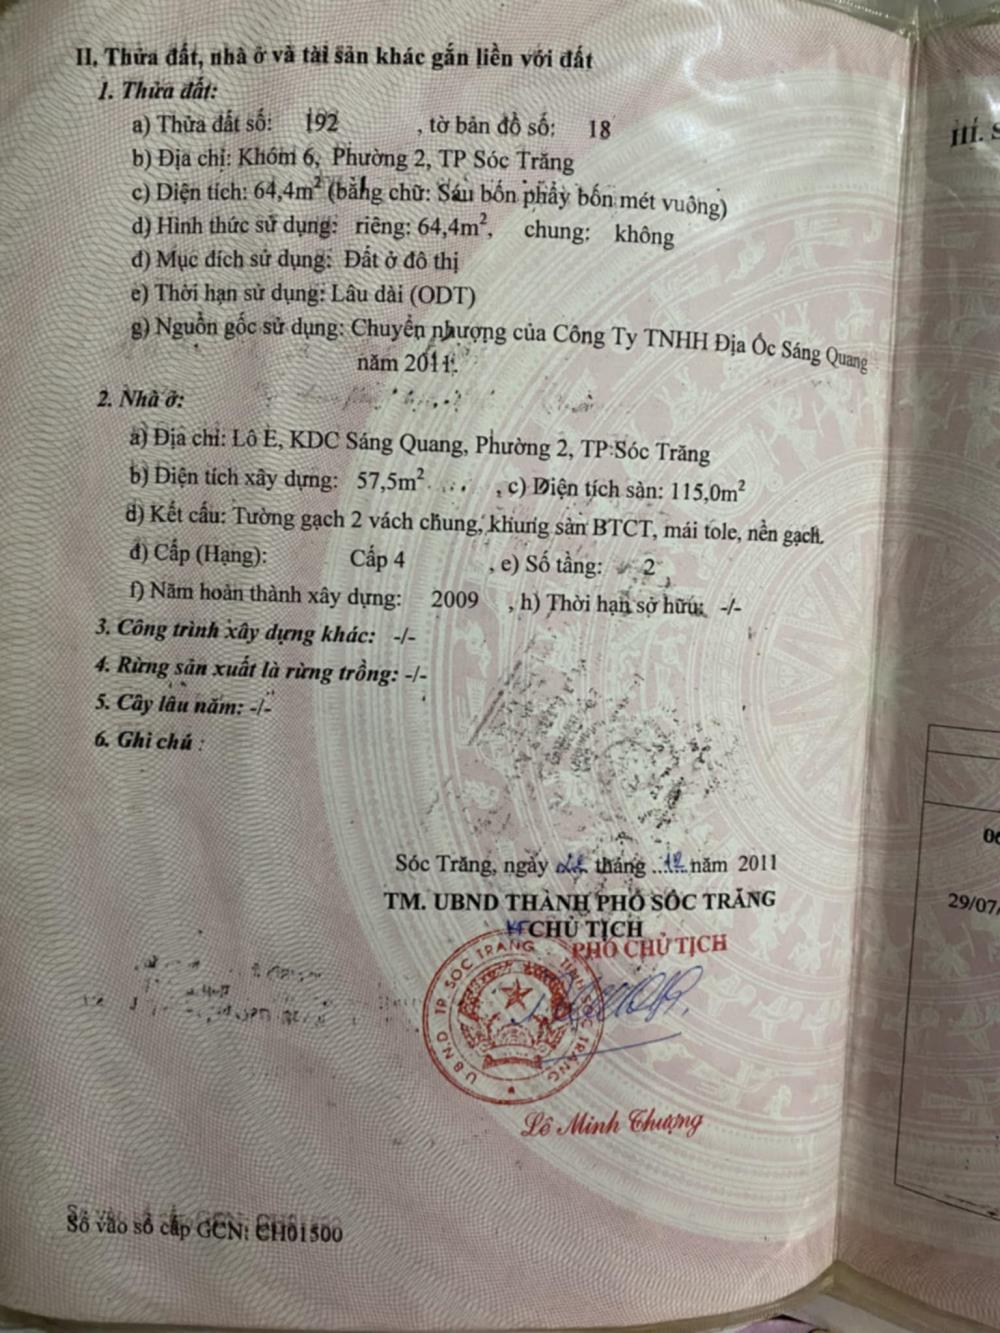 II. Thửa đất, nhà ở và tài sản khác gắn liền với đất
1. Thửa đất:
a) Thửa đất số: 192 , tờ bản đồ số: 18
b) Địa chỉ: Khóm 6, Phường 2, TP Sóc Trăng
c) Diện tích: 64,4m² (bằng chữ: Sáu bốn phẩy bốn mét vuông)
d) Hình thức sử dụng: riêng: 64,4m², chung: không
đ) Mục đích sử dụng: Đất ở đô thị
e) Thời hạn sử dụng: Lâu dài (ODT)
g) Nguồn gốc sử dụng: Chuyển nhượng của Công Ty TNHH Địa Ốc Sáng Quang
năm 2011.
2. Nhà ở:
a) Địa chỉ: Lô E, KDC Sáng Quang, Phường 2, TP Sóc Trăng
b) Diện tích xây dựng: 57,5m² , c) Diện tích sàn: 115,0m²
d) Kết cấu: Tường gạch 2 vách chung, khung sàn BTCT, mái tole, nền gạch.
đ) Cấp (Hạng): Cấp 4 , e) Số tầng: 2
f) Năm hoàn thành xây dựng: 2009 , h) Thời hạn sở hữu: -/-
3. Công trình xây dựng khác: -/-
4. Rừng sản xuất là rừng trồng: -/-
5. Cây lâu năm: -/-
6. Ghi chú :
Sóc Trăng, ngày tháng 12 năm 2011
TM. UBND THÀNH PHỐ SÓC TRĂNG
KT CHỦ TỊCH
PHÓ CHỦ TỊCH
U.B.N.D TP. SÓC TRĂNG - TỈNH SÓC TRĂNG
Lê Minh Thượng
Số vào sổ cấp GCN: CH01500
III. S
29/07/